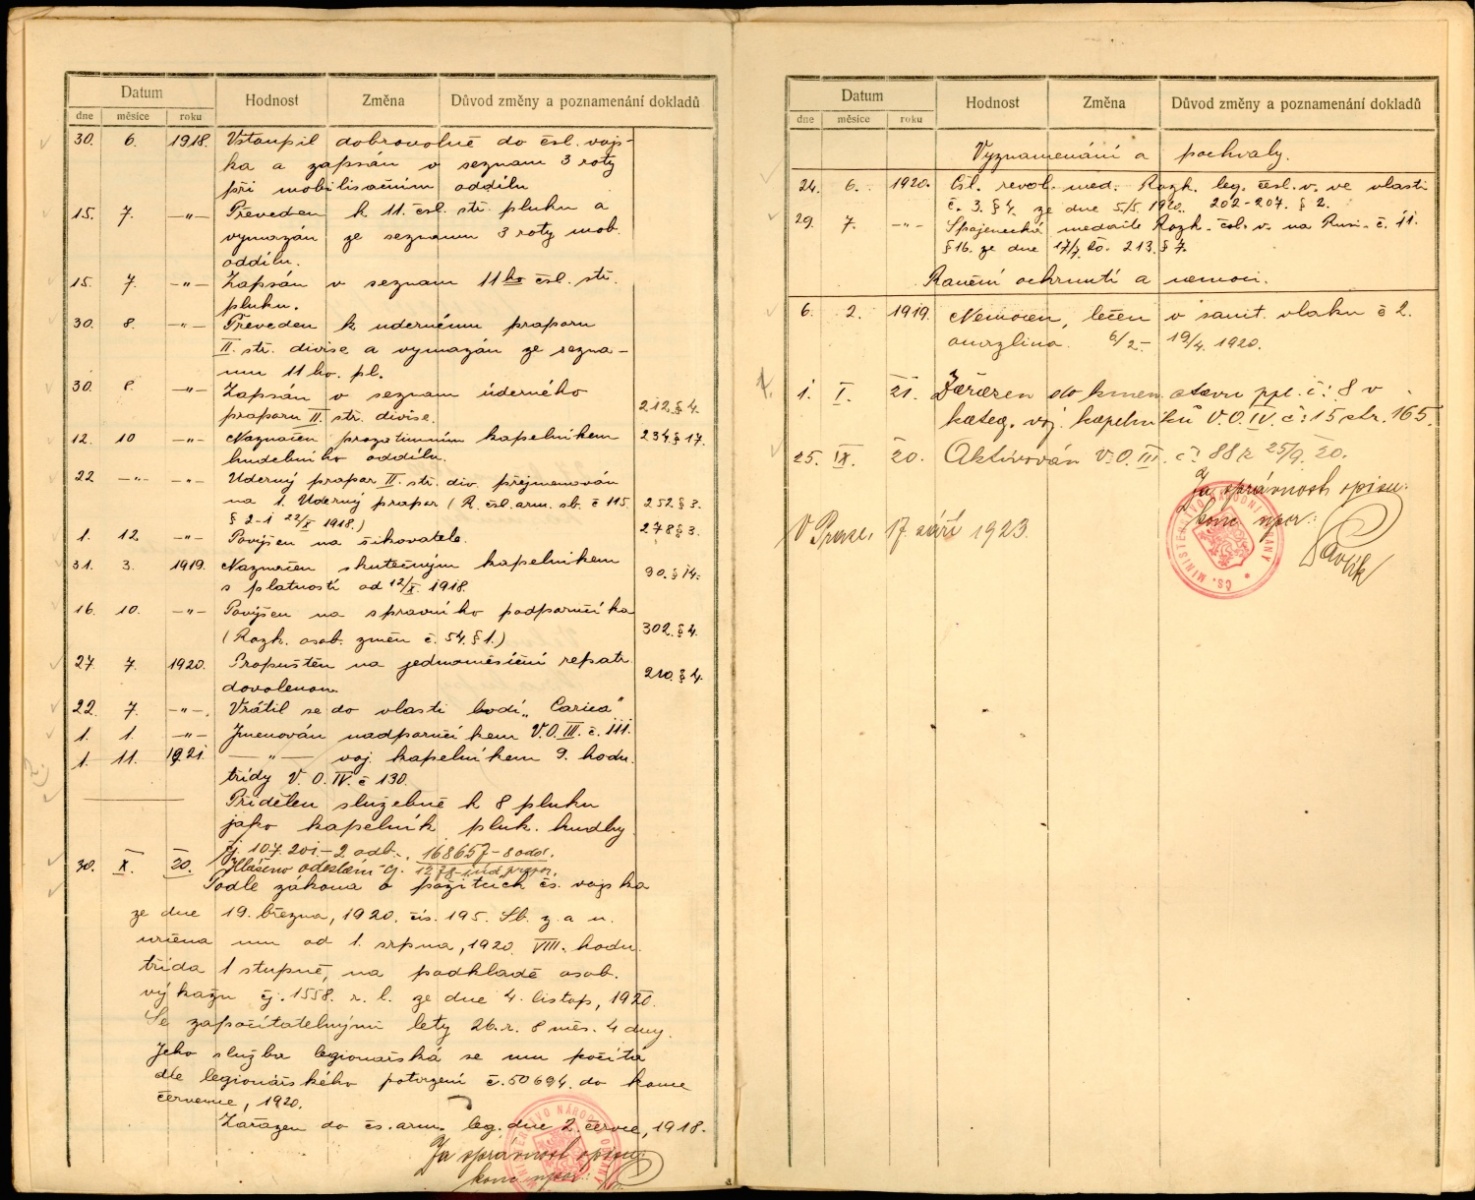 Datum Hodnost Změna Důvod změny a poznamenání dokladů
dne měsíce roku
30. 6. 1918. Vstoupil dobrovolně do čsl. vojs-
ka a zapsán v seznam 3 roty
při mobilisačním oddílu
15. 7. —"— Převeden k 11. čsl. stř. pluku a
vymazán ze seznamu 3 roty mob.
oddílu.
15. 7. —"— Zapsán v seznam 11ho čsl. stř.
pluku.
30. 8. —"— Převeden k udernému praporu
II. stř. divise a vymazán ze sezna-
mu 11 ho. pl.
30. 8. —"— Zapsán v seznam úderného
praporu II. stř. divise. 212 § 4.
12. 10 —"— Naznačen prozatimním kapelníkem 234 § 17.
hudebního oddílu.
22 —"— —"— Uderný prapor II. stř. div. přejmenován
na 1. Uderný prapor (R. čsl. arm. sb. č 115 252 § 3.
§ 2-i 22/X 1918.)
1. 12. —"— Povýšen na šikovatele. 278 § 3.
31. 3. 1919. Naznačen skutečným kapelníkem
s platností od 12/X. 1918. 90. § 14.
16. 10. —"— Povýšen na správního podporučíka
(Rozk. osob. změn č. 54. § 1.) 302. § 4.
27. 7. 1920. Propuštěn na jednoměsíční repatr.
dovolenou 210. § 4.
22. 7. —"— Vrátil se do vlasti lodí „Carica"
1. 1. —"— Jmenován nadporučíkem V.O. III. č. 111.
1. 11. 1921. —"— voj. kapelníkem 9. hodn.
třídy V. O. IV. č 130.
Přidělen služebně k 8 pluku
jako kapelník pluk. hudby.
čj. 107.201-2 odb.. 168657-8 odd.
30. X. 20. Hlášeno odeslání čj. 1278
Podle zákona o požitcích čs. vojska
ze dne 19. března, 1920. čís. 195. Sb. z. a n.
určena mu od 1. srpna, 1920. VIII. hodn.
třída 1 stupně, na podkladě osob.
výkazu čj. 1558. r. l. ze dne 4. listop, 1920.
Se započítatelnými lety 26. r. 8 měs. 4 dny.
Jeho služba legionářská se mu počítá
dle legionářského potvrzení č. 50694. do konce
července, 1920.
Zařazen do čs. arm. leg. dne 2. červce, 1918.
Za správnost opisu:
Datum Hodnost Změna Důvod změny a poznamenání dokladů
dne měsíce roku
Vyznamenání a pochvaly.
24. 6. 1920. Čsl. revol. med. Rozk. leg. česl. v. ve vlasti
č. 3. § 4. ze dne 5/5. 1920. 202-207. § 2.
29. 7. —"— Spojenecká medaile Rozk. čsl. v. na Rusi. č. 11.
§ 16. ze dne 17/7. 20. 213. § 7.
Ranění ochrnutí a nemoci.
6. 2. 1919. Nemocen, léčen v sanit. vlaku č 2.
omrzlina. 6/2 - 19/4. 1920.
1. I. 21. Zařazen do kmen. stavu ppl. č: 8 v
kateg. voj. kapelníků V.O. IV. č: 15 str. 165.
25. IX. 20. Aktivován V.O. III. č: 88 z 25/9. 20.
Za správnost opisu:
V Praze, 17. září 1923.
Pavlík
ČS. MINISTERSTVO NÁRODNÍ OBRANY